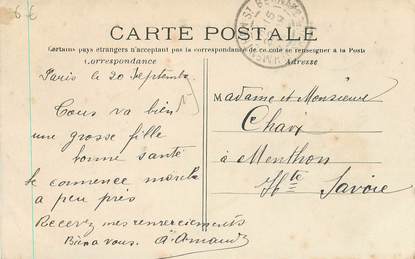 6€
CARTE POSTALE
Certains pays étrangers n'acceptant pas la correspondance de ce côté se renseigner à la Poste
Correspondance
Adresse
Paris le 20 Septembre
Tous va bien
une grosse fille
bonne santé
Je commence
a peu près
Recevez mes remerciements
Bien a vous. A. Amand
Madame et Monsieur
Chaix
à Menthon
Hte Savoie